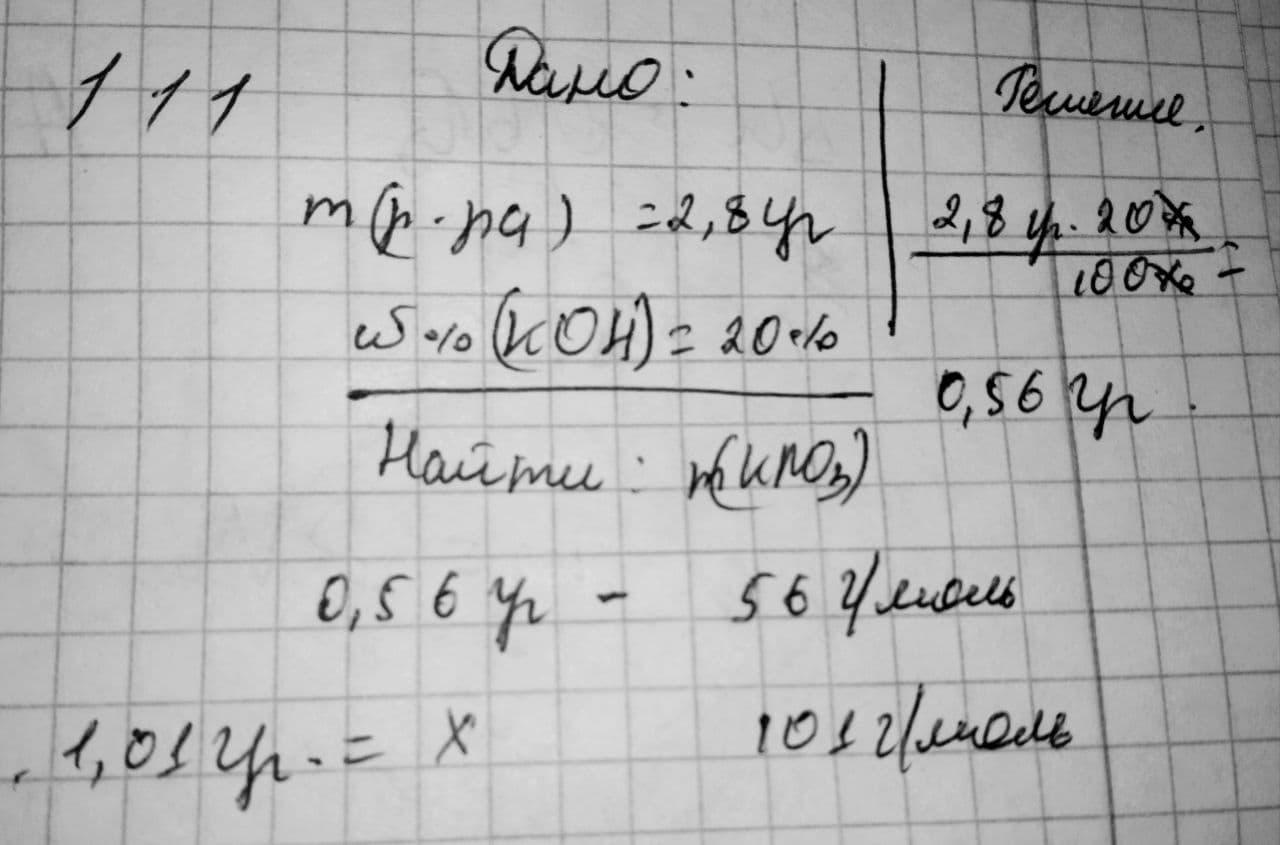 111 Дано: Решение.
m(р-ра) = 2,8 гр
2,8 гр. 20%
100% =
ω%(KOH) = 20%
0,56 гр.
Найти: m(KNO3)
0,56 гр - 56 г/моль
1,01 гр. = x 101 г/моль